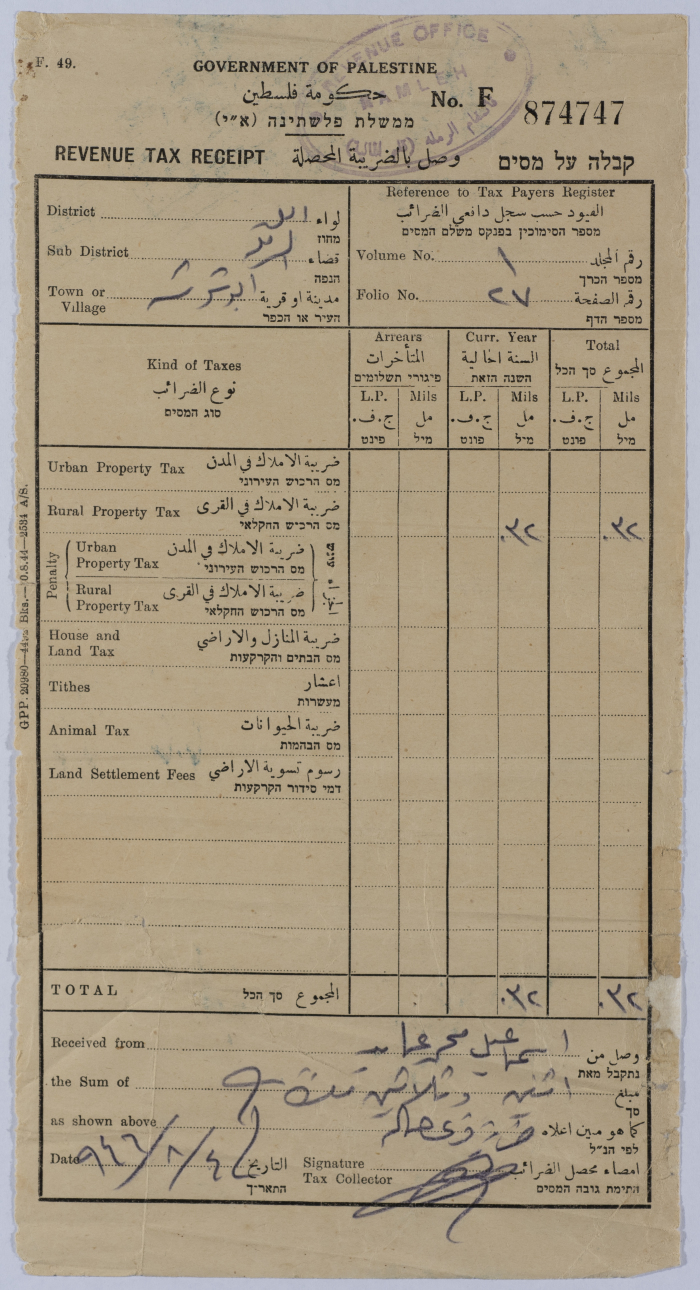 F. 49.
REVENUE OFFICE
RAMLEH
GOVERNMENT OF PALESTINE
حكومة فلسطين
ממשלת פלשתינה (א״י)
No. F 874747
REVENUE TAX RECEIPT وصل بالضريبة المحصلة קבלה על מסים
District لواء
מחוז
Sub District قضاء
הנפה
Town or Village مدينة او قرية
העיר או הכפר
Reference to Tax Payers Register
القيود حسب سجل دافعي الضرائب
מספר הסימוכין בפנקס משלם המסים
Volume No. ١ رقم المجلد
מספר הכרך
Folio No. ٢٧ رقم الصفحة
מספר הדף
Kind of Taxes
نوع الضرائب
סוג המסים
Arrears
المتأخرات
פיגורי תשלומים
Curr. Year
السنة الحالية
השנה הזאת
Total
المجموع סך הכל
L.P. Mils L.P. Mils L.P. Mils
ج.ف. مل ج.ف. مل ج.ف. مل
פונט מיל פונט מיל פונט מיל
Urban Property Tax ضريبة الاملاك في المدن
מס הרכוש העירוני
Rural Property Tax ضريبة الاملاك في القرى
מס הרכוש החקלאי
٠٣٢ ٠٣٢
Penalty
Urban Property Tax ضريبة الاملاك في المدن
מס הרכוש העירוני
Rural Property Tax ضريبة الاملاك في القرى
מס הרכוש החקלאי
עונש
House and Land Tax ضريبة المنازل والاراضي
מס הבתים והקרקעות
Tithes اعشار
מעשרות
Animal Tax ضريبة الحيوانات
מס הבהמות
Land Settlement Fees رسوم تسوية الاراضي
דמי סידור הקרקעות
TOTAL المجموع סך הכל ٠٣٢ ٠٣٢
Received from اسماعيل محمد وصل من
נתקבל מאת
the Sum of اثنين وثلاثين مبلغ
סך
as shown above كما هو مبين اعلاه
לפי הנ״ל
Date ٩٤٦/٨/٤ التاريخ
התאריך
Signature Tax Collector امضاء محصل الضرائب
חתימת גובה המסים